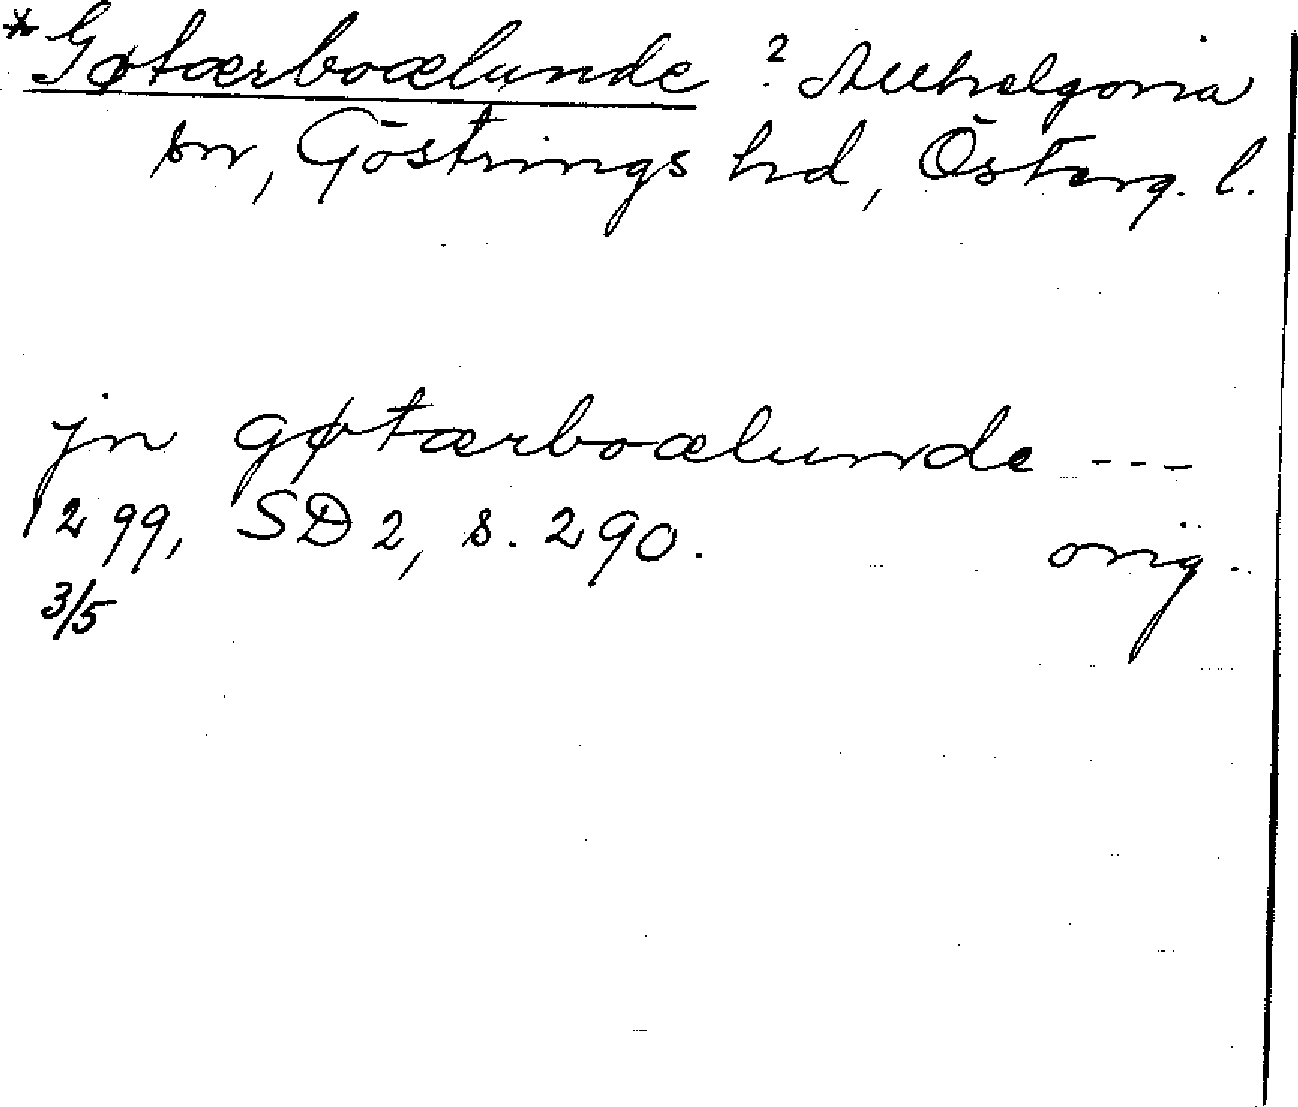 *Gøtærboælunde ? Allhelgona
sn, Göstrings hd, Österg. l.
jn gøtærboælunde ---
1299, SD 2, s. 290. orig.
3/5